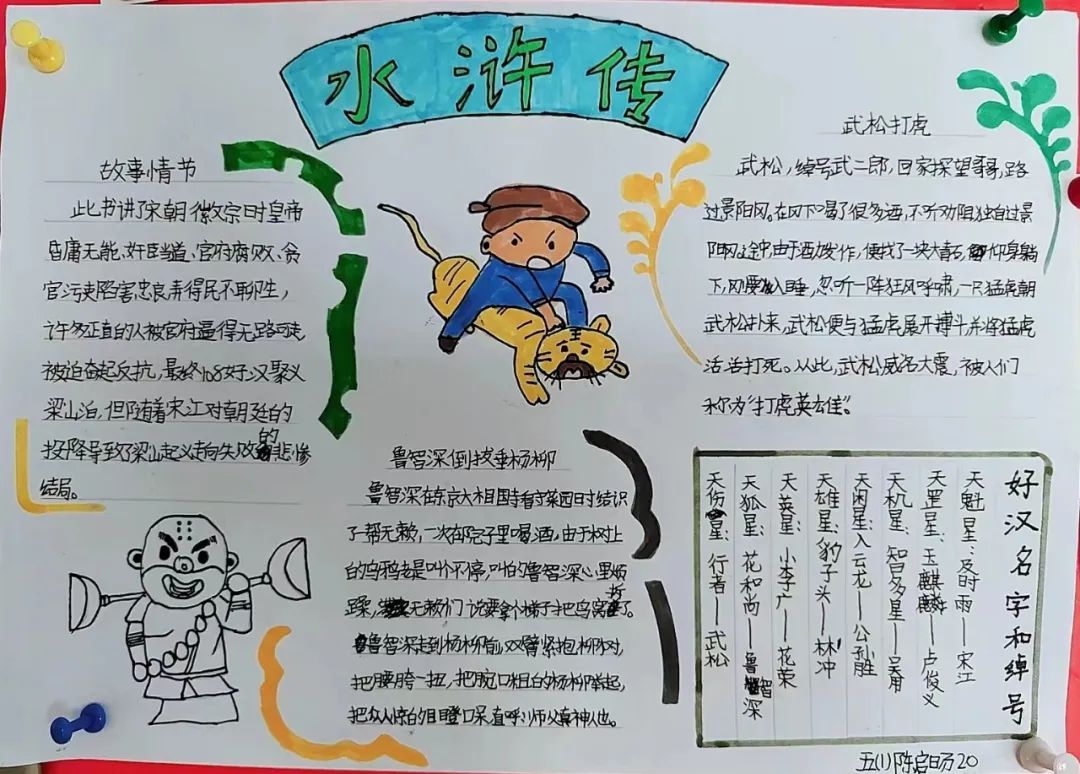 水浒传
故事情节
此书讲了宋朝徽宗时皇帝
昏庸无能、奸臣当道、官府腐败、贪
官污吏陷害忠良弄得民不聊生，
许多正直的人被官府逼得无路可走
被迫奋起反抗，最终108好汉聚义
梁山泊，但随着宋江对朝廷的
投降导致了梁山起义走向失败的悲惨
结局。
武松打虎
武松，绰号武二郎，回家探望哥哥，路
过景阳冈。在冈下喝了很多酒，不听劝阻独自过景
阳冈途中，由于酒力发作，便找了一块大青石，仰身躺
下，刚要入睡，忽听一阵狂风呼啸，一只猛虎朝
武松扑来，武松便与猛虎展开搏斗并将猛虎
活活打死。从此，武松威名大震，被人们
称为“打虎英雄”。
鲁智深倒拔垂杨柳
鲁智深在东京大相国寺看守菜园时结识
了帮无赖，一次都在子里喝酒，由于树上
的乌鸦老是叫个不停，叫的鲁智深心里烦
躁，无赖们说要拿个梯子把鸟窝拆了。
鲁智深走到杨柳前，双臂紧抱柳树，
把腰胯一扭，把碗口粗的杨柳举起，
把众人惊的目瞪口呆直呼：师父真神人也。
好汉名字和绰号
天魁星：及时雨——宋江
天罡星：玉麒麟——卢俊义
天机星：智多星——吴用
天闲星：入云龙——公孙胜
天雄星：豹子头——林冲
天英星：小李广——花荣
天狐星：花和尚——鲁智深
天伤星：行者——武松
五(1)陈启旸20